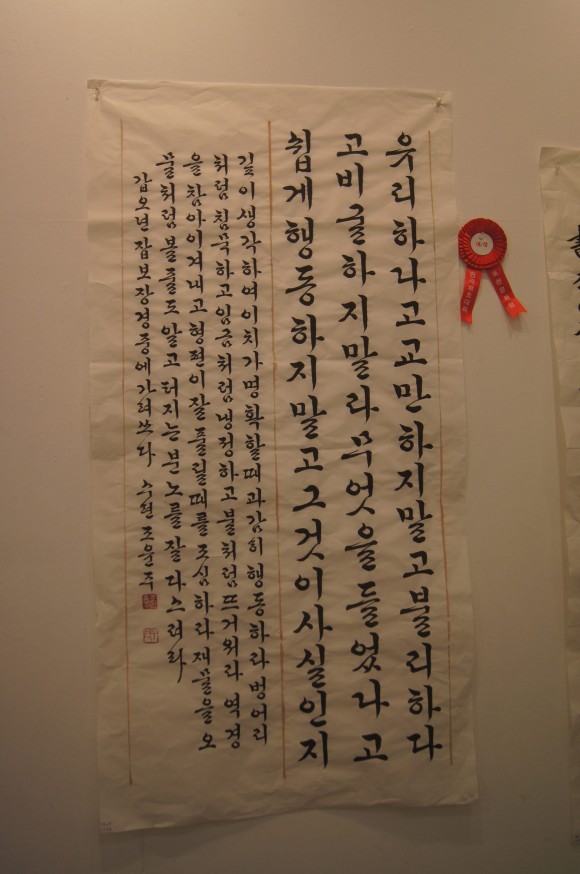 유리하다고교만하지말고불리하다
고비굴하지말라무엇을들었다고
쉽게행동하지말고그것이사실인지
깊이생각하여이치가명확할때과감히행동하라벙어리
처럼침묵하고임금처럼냉정하고불처럼뜨거워라역경
을참아이겨내고형편이잘풀릴때를조심하라재물을오
물처럼볼줄도알고터지는분노를잘다스려라
갑오년잡보장경중에가려쓰다 수현조운주